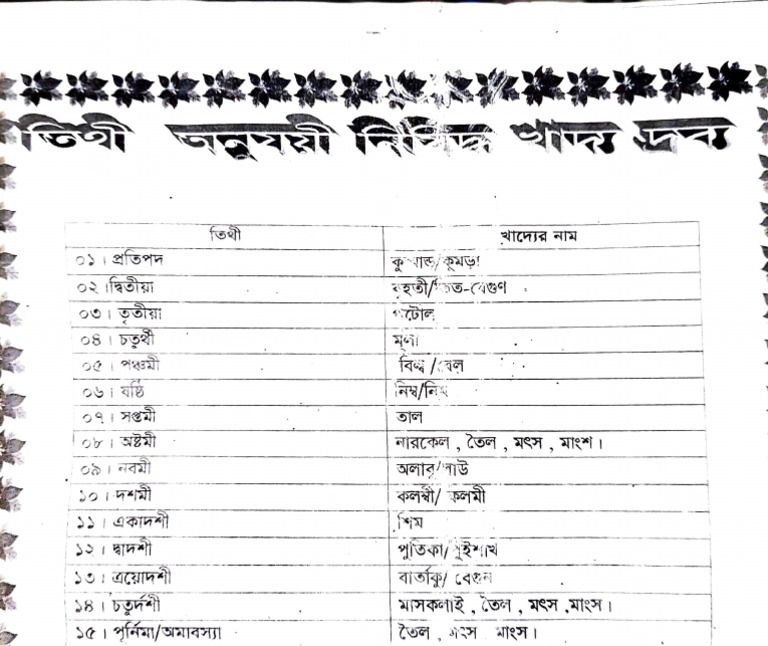 তিথী অনুযয়ী নিষিদ্ধ খাদ্য দ্রব্য
তিথী খাদ্যের নাম
০১। প্রতিপদ /কুমড়া
০২।দ্বিতীয়া বৃহতী/
০৩। তৃতীয়া পটোল
০৪। চতুর্থী মূলা
০৫। পঞ্চমী বিল্ব /বেল
০৬। ষষ্ঠি নিম্ব/নিম
০৭। সপ্তমী তাল
০৮। অষ্টমী নারকেল , তৈল , মৎস , মাংশ।
০৯। নবমী অলাবু/লাউ
১০। দশমী কলম্বী/ কলমী
১১। একাদশী শিম
১২। দ্বাদশী পুতিকা/পুইশাখ
১৩। ত্রয়োদশী বার্তাকু/ বেগুন
১৪। চতুর্দশী মাসকলাই , তৈল , মৎস ,মাংস।
১৫। পূর্নিমা/অমাবস্যা তৈল , মৎস , মাংস।